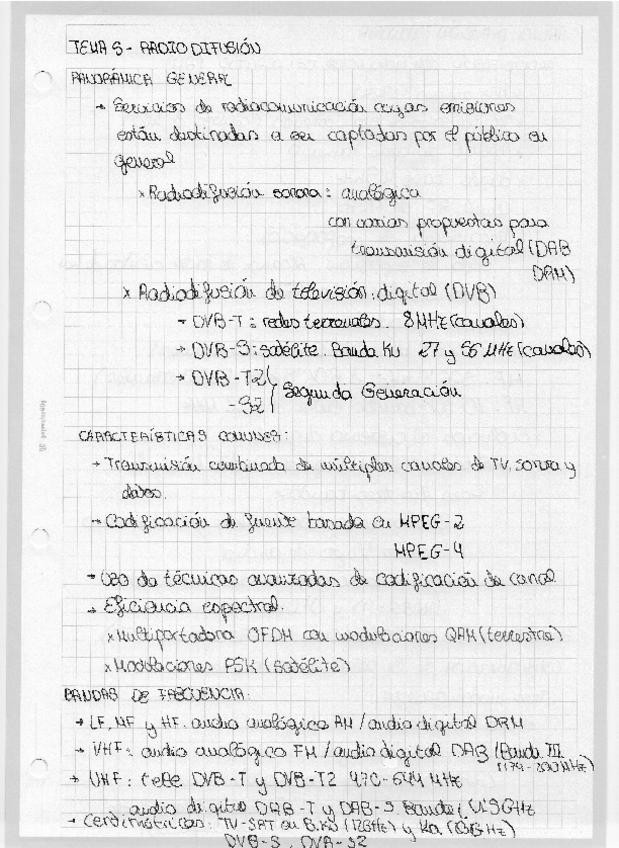 TEMA 5 - RADIODIFUSIÓN
PANORÁMICA GENERAL
→ Servicios de radiocomunicación cuyas emisiones
están destinadas a ser captadas por el público en
general
x Radiodifusión sonora: analógica
con varias propuestas para
transmisión digital (DAB
DRM)
x Radiodifusión de televisión: digital (DVB)
→ DVB-T: redes terrenales. 8MHz (canales)
→ DVB-S: satélite. Banda Ku 27 y 36 MHz (canales)
→ DVB-T2
-S2
Segunda Generación
CARACTERÍSTICAS COMUNES:
→ Transmisión combinada de múltiples canales de TV, sonora y
datos.
→ Codificación de fuente basada en MPEG-2
MPEG-4
→ Uso de técnicas avanzadas de codificación de canal
→ Eficiencia espectral.
x Multiportadora OFDM con modulaciones QAM (terrestre)
x Modulaciones PSK (satélite)
BANDAS DE FRECUENCIA:
→ LF, MF y HF: audio analógico AM / audio digital DRM
→ VHF: audio analógico FM / audio digital DAB (Banda III
→ UHF: tele DVB-T y DVB-T2 MHz
audio DAB-T y DAB-S. Banda GHz
→ Centimétricas: TV-SAT en B.Ku (12GHz) y Ka
DVB-S, DVB-S2